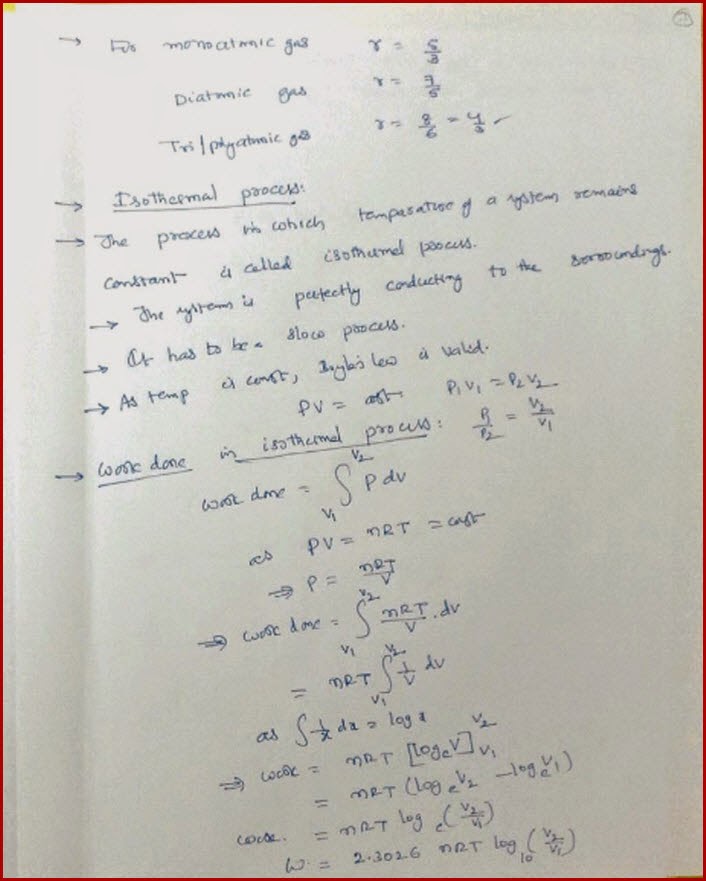 → For monoatomic gas γ = 5/3
Diatomic gas γ = 7/5
Tri/polyatomic gas γ = 8/6 = 4/3
→ Isothermal process:
→ The process in which temparature of a system remains
constant is called isothermal process.
→ The system is perfectly conducting to the surroundings.
→ It has to be a slow process.
→ As temp is const, Boyle's law is valid.
PV = const. P₁V₁ = P₂V₂
P₁/P₂ = V₂/V₁
→ Work done in isothermal process:
work done = ∫_{V₁}^{V₂} P dv
as PV = nRT = const
⇒ P = nRT/V
⇒ work done = ∫_{V₁}^{V₂} nRT/V . dv
= nRT ∫_{V₁}^{V₂} 1/V dv
as ∫ 1/x dx = log x
⇒ work = nRT [log_e V]_{V₁}^{V₂}
= nRT (log_e V₂ – log_e V₁)
work. = nRT log_e (V₂/V₁)
W = 2.3026 nRT log₁₀ (V₂/V₁)